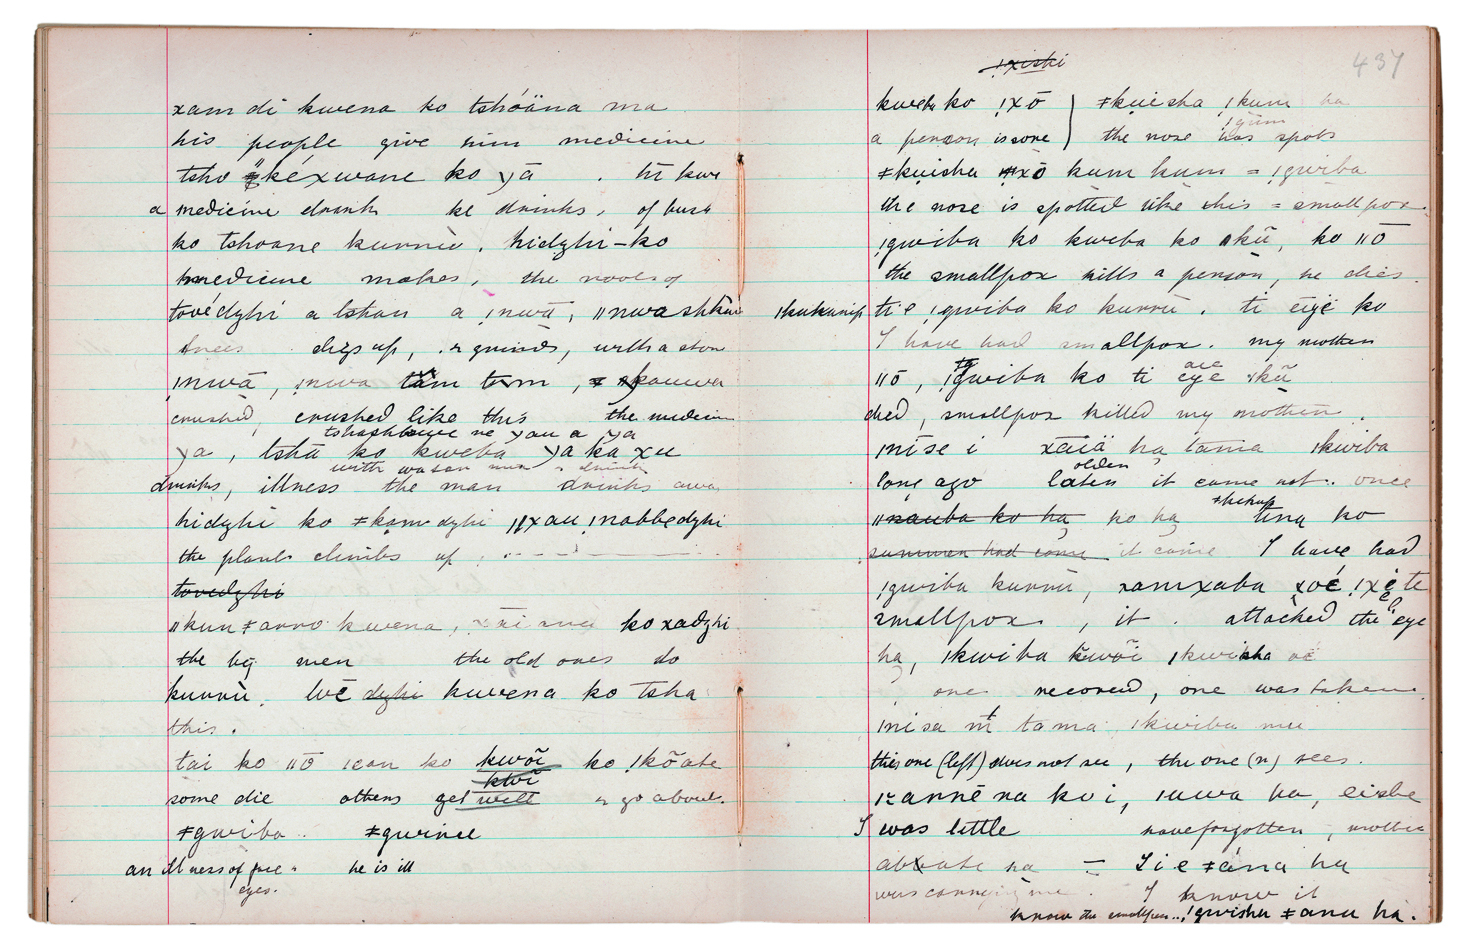 xam di kwena ko tshóäna ma
his people give him medicine
tsho ǂkéxwane ko yā . hī kwe
a medicine drink he drinks, of bush
ko tshoane kurrùù. hidzhi-ko
medicine makes, the roots of
tovédzhi a tshau a ǃnwā, ǁnwashkau
trees digs up, & grinds, with a stone
ǃnwā, ǃnwa tam
crushed, crushed like this the medicine
tshashkwe ne yau a ya
ya, tshā ko kweba ya ka xu
with wason man & drink
drinks, illness the man drinks away
hidzhi ko ǂkam dzhi ǁxau ǃnabbedzhi
the plant climbs up
tovedzhi
ǁkun ǂarro kwena, ko xadzhi
the big men the old ones do
kurrùù. wē dzhi kwena ko tsha
this.
tai ko ǁō ǀcan ko kwõĩ ko ǃkõate
kwĩ
some die others get well & go about.
ǂgwiba . ǂgwinee
an illness of face & he is ill
eyes.
ǃxishi
437
kweba ko ǃxō ) ǂkuisha ǃkum ha
ǃgum
a person is sore ) the nose has spots
ǂkuisha ǃxō kum kum = ǃgwiba
the nose is spotted like this = smallpox.
ǃgwiba ko kweba ko ǀkū, ko ǁō
the smallpox kills a person, he dies.
ǀkukunip ti e ǃgwiba ko kurrū. ti eijé ko
I have had smallpox. my mother
ǁō, ǃgwiba ko ti eye ǀkū
died, smallpox killed my mother.
ǀnīse i xāiä ha tama ǀkwiba
olden
long ago later it came not.. once
ǁnauba ko ha ko ha tina ko
summer had come it came I have had
ǃgwiba kurrū, xamxaba xoé ǃxé te
smallpox, it . attacked the eye
ha, ǀkwiba kwõĩ ǀkwisha oé
one recovered, one was taken.
ǀnisa m̄ tama ǀkwiba mu
this one (left) does not see, the one (r) sees.
ǀkanné na ko i, ǀuwa ha, eishe
I was little have forgotten, mother
abxate ha = Tie ǂána ha
was carrying me. I know it
know the smallpox... ǃgwisha ǂana ha.